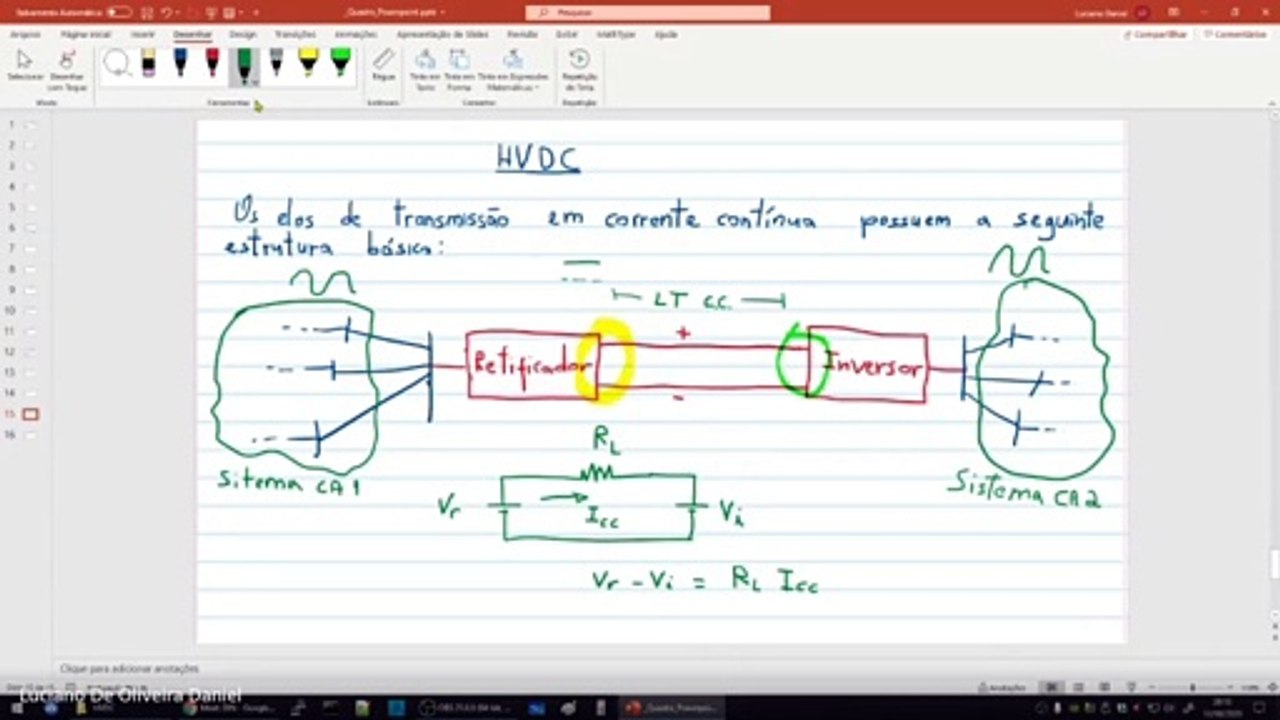 _Quadro_Powerpoint.pptx
Pesquisar
Arquivo Página Inicial Inserir Desenhar Design Transições Animações Apresentação de Slides Revisão Exibir MathType Ajuda
Compartilhar Comentários
Selecionar
Desenhar com Toque
Régua
Tinta em Texto
Tinta em Forma
Tinta em Expressões Matemáticas
Repetição de Tinta
Modo Ferramentas Converter Repetição
1
2
3
4
5
6
7
8
9
10
11
12
13
14
15
16
HVDC
Os elos de transmissão em corrente contínua possuem a seguinte
estrutura básica:
LT CC
+
Retificador
Inversor
-
Sitema CA1
Sistema CA2
RL
Vr
Icc
Vi
Vr - Vi = RL Icc
Clique para adicionar anotações
Luciano De Oliveira Daniel